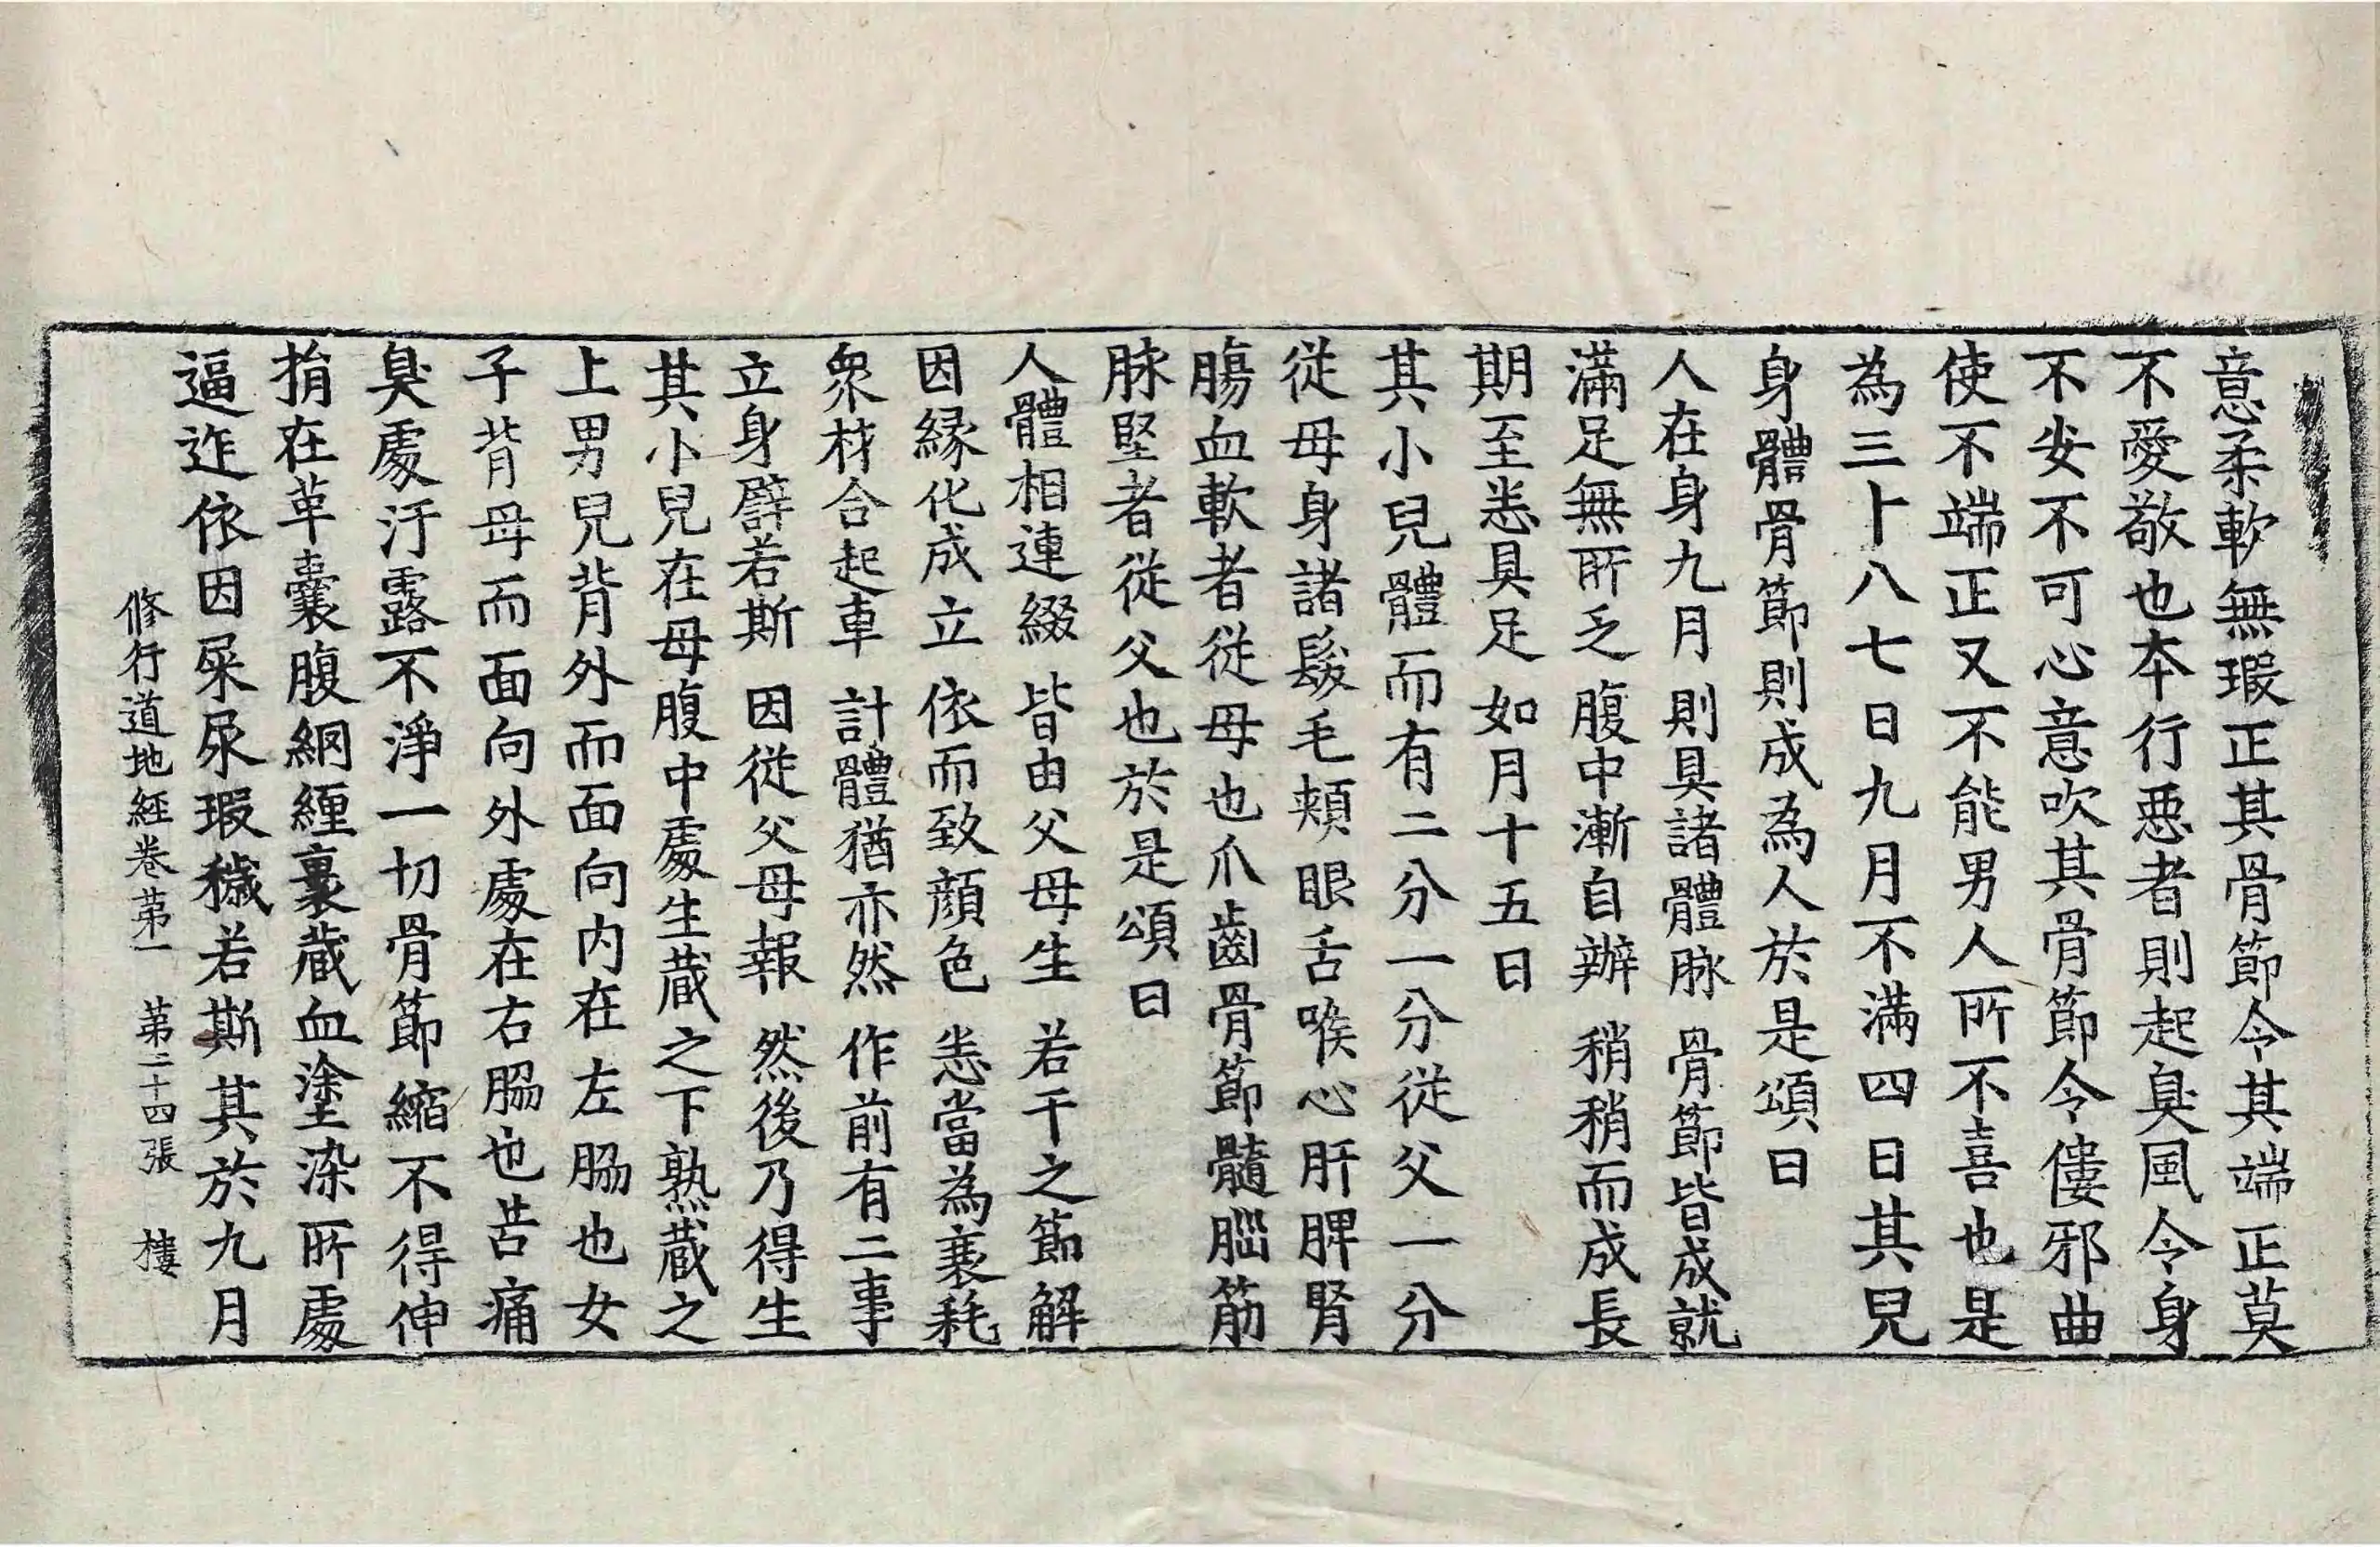 意柔軟無瑕正其骨節令其端正莫
不愛敬也本行惡者則起臭風令身
不安不可心意吹其骨節令僂邪曲
使不端正又不能男人所不喜也是
為三十八七日九月不滿四日其兒
身體骨節則成為人於是頌曰
人在身九月 則具諸體脉 骨節皆成就
滿足無所乏 腹中漸自辦 稍稍而成長
期至悉具足 如月十五日
其小兒體而有二分一分從父一分
從母身諸髮毛頰眼舌喉心肝脾腎
腸血軟者從母也爪齒骨節髓腦筋
脉堅者從父也於是頌曰
人體相連綴 皆由父母生 若干之節解
因緣化成立 依而致顏色 悉當為衰耗
眾材合起車 計體猶亦然 作前有二事
立身譬若斯 因從父母報 然後乃得生
其小兒在母腹中處生藏之下熟藏之
上男兒背外而面向內在左脇也女
子背母而面向外處在右脇也苦痛
臭處汙露不淨一切骨節縮不得伸
捐在革囊腹網纏裹藏血塗染所處
逼迮依因屎尿瑕穢若斯其於九月
修行道地經卷第一 第二十四張 樓